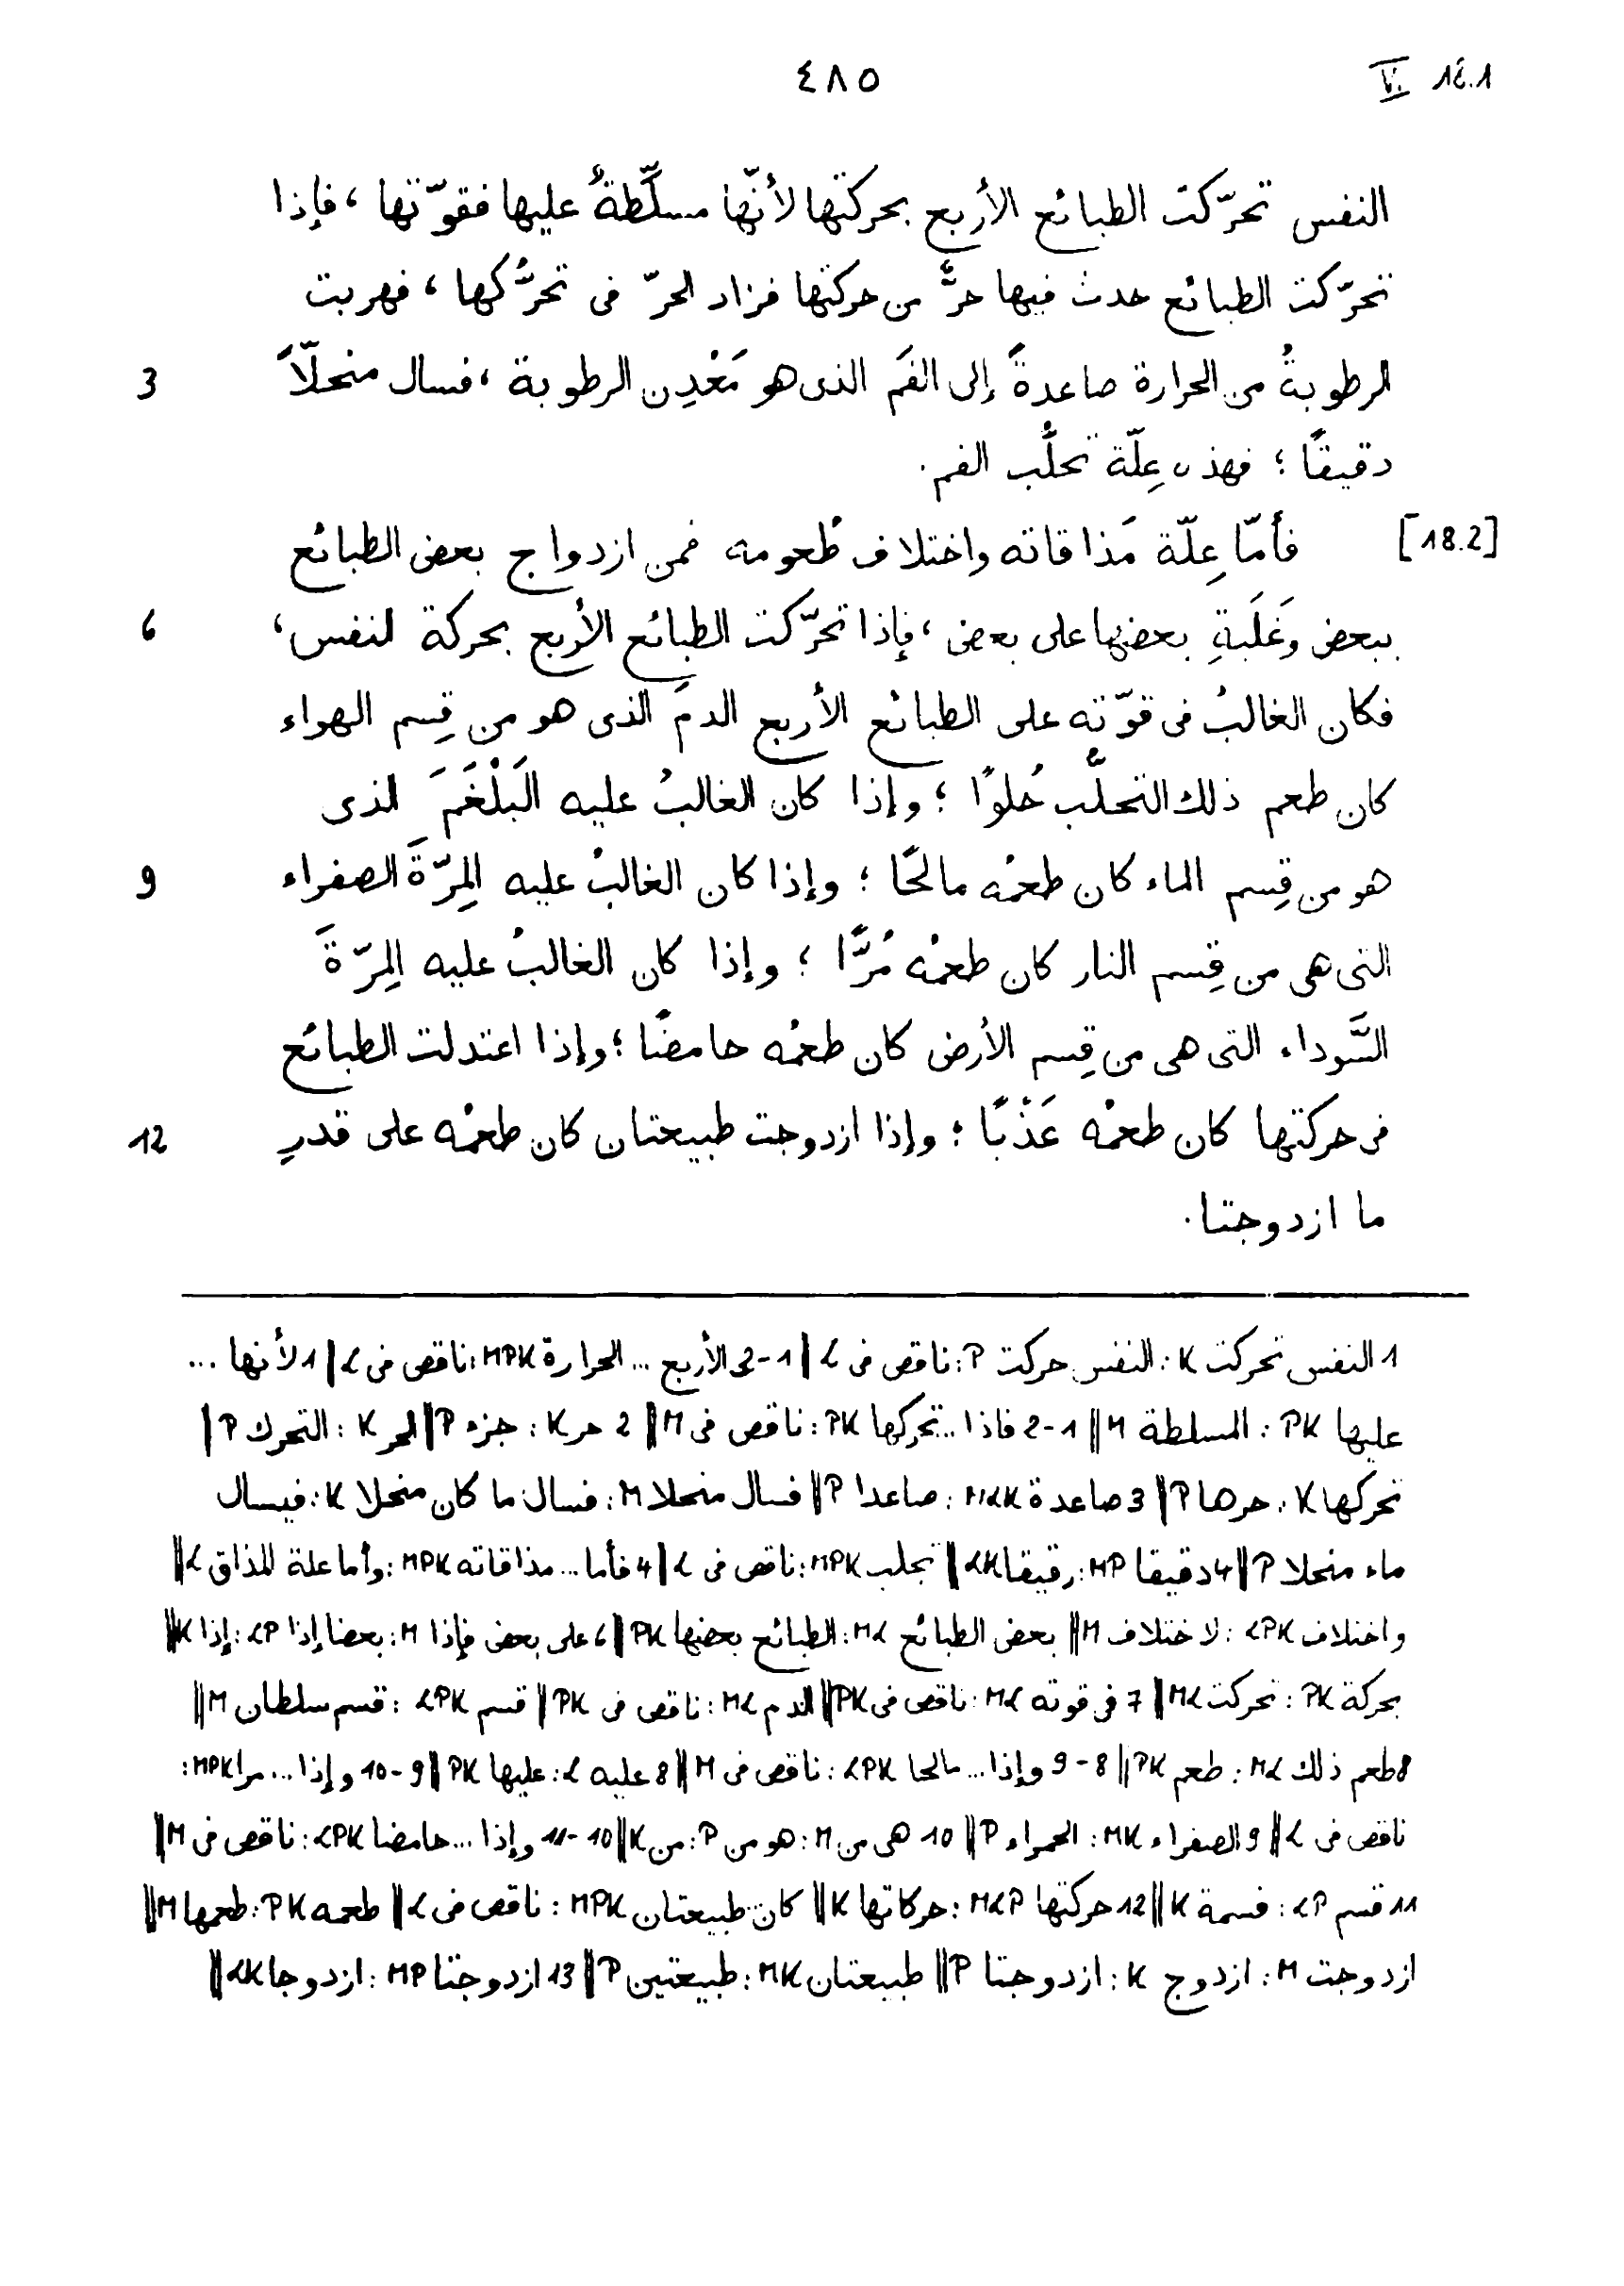 ٤٨٥ VI. 18.1
النفس تحرّكت الطبائع الأربع بحركتها لأنّها مسلَّطةٌ عليها فقوّتها، فإذا
تحرّكت الطبائع حدث فيها حرٌّ من حركتها فزاد الحرّ فى تحرُّكها، فهربت
3 الرطوبةُ من الحرارة صاعدةً إلى الفَم الذى هو مَعْدِن الرطوبة، فسال منحلّاً
دقيقًا؛ فهذه عِلّة تحلُّب الفم.
[18.2] فأمّا عِلّة مَذاقاته واختلاف طُعومه فمن ازدواج بعض الطبائع
6 ببعض وغَلَبةِ بعضها على بعض، فإذا تحرّكت الطبائع الأربع بحركة النفس،
فكان الغالبُ فى قوّته على الطبائع الأربع الدمَ الذى هو من قِسم الهواء
كان طعم ذلك التحلُّب حُلوًا؛ وإذا كان الغالبُ عليه البَلْغَمَ الذى
9 هو من قِسم الماء كان طعمُه مالحًا؛ وإذا كان الغالبُ عليه المِرّةَ الصفراء
التى هى من قِسم النار كان طعمُه مُرًّا؛ وإذا كان الغالبُ عليه المِرّةَ
السَّوداء التى هى من قِسم الأرض كان طعمُه حامضًا؛ وإذا اعتدلت الطبائع
12 فى حركتها كان طعمُه عَذْبًا؛ وإذا ازدوجت طبيعتان كان طعمُه على قدرِ
ما ازدوجتا.
1 النفس تحركت K: النفس حركت P: ناقص فى L | 1-3 الأربع ... الحرارة MPK: ناقص فى L | 1 لأنها ...
عليها PK: المسلطة M || 1-2 فاذا ... تحركها PK: ناقص فى M || 2 حر K: جزء P || الحر K: التحرك P |
تحركها K: حرها P || 3 صاعدة MLK: صاعدا P || فسال منحلا M: فسال ما كان منحلا K: فيسال
ماء منحلا P || 4 دقيقا MP: رقيقا LK || تحلب MPK: ناقص فى L | 4 فأما ... مذاقاته MPK: وأما علة المذاق L ||
واختلاف LPK: لاختلاف M || بعض الطبائع ML: الطبائع بعضها PK || 6 على بعض فإذا M: بعضا إذا LP: إذا K ||
بحركة PK: تحركت ML || 7 فى قوته ML: ناقص فى PK || الدم ML: ناقص فى PK || قسم LPK: قسم سلطان M ||
8 طعم ذلك ML: طعم PK || 8-9 وإذا ... مالحا LPK: ناقص فى M || 8 عليه L: عليها PK || 9-10 وإذا ... مرا MPK:
ناقص فى L || 9 الصفراء MK: الحمراء P || 10 هى من M: هو من P: من K || 10-11 وإذا ... حامضا LPK: ناقص فى M ||
11 قسم LP: قسمة K || 12 حركتها MLP: حركاتها K || كان طبيعتان MPK: ناقص فى L || طعمه PK: طعمها M ||
ازدوجت M: ازدوج K: ازدوجتا P || طبيعتان MK: طبيعتين P || 13 ازدوجتا MP: ازدوجا LK ||